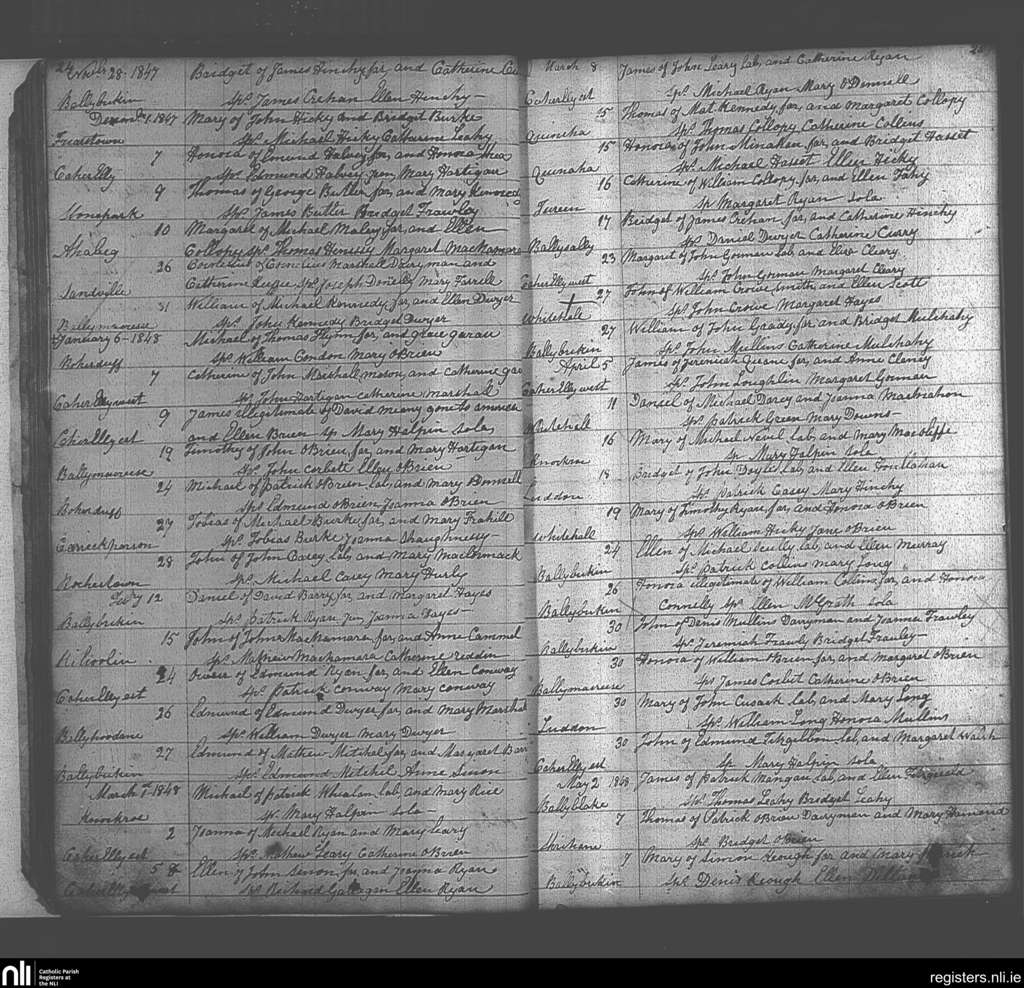 24 Novbr 28 - 1847 Bridget of James Hinchy far, and Catherine
Ballybrikin Sps. James Crehan Ellen Hinchy -
December 1. 1847 Mary of John Hicky and Bridget Burke
Friarstown Sps. Michael Hicky Catherine Leahy
7 Honora of Emund Halvey far, and Honora Shea
CaherElly Sps. Edmund Halvey Jun. Mary Hartigan
9 Thomas of George Butler far, and Mary Kennedy
Stonepark Sps. James Butler Bridget Frawley
10 Margaret of Michael Maley far, and Ellen
Ahaleg Collopy Sps. Thomas Hennessy Margaret Mackamara
26 of Cornelius Marshall Dairyman and
Sandville Catherine Sps. Joseph Donelly Mary Farrell
31 William of Michael Kennedy, far, and Ellen Dwyer
Ballymacreese Sps. John Kennedy Bridget Dwyer
January 6 - 1848 Michael of Thomas Flynn far, and
Boherduff Sps. William Condon Mary OBrien
7 Catherine of John Marshall mason, and Catherine
CaherElly west Sps. John Hartigan Catherine Marshall
9 James illegitimate of David Meany gone to america
CaherElly est and Ellen Brien Sp. Mary Halpin Sola
19 Timothy of John OBrien far, and Mary Hartigan
Ballymacreese Sps. John Corbett Ellen OBrien
24 Michael of Patrick OBrien lab, and Mary Donnell
Boherduff Sps. Edmund OBrien Joanna OBrien
27 Tobias of Michael Burke, far, and Mary Frahill
Carrickparson Sps. Tobias Burke Joanna Shaughnessy -
28 John of John Casey lab, and Mary MacCormack
Rochestown Sps. Michael Casey Mary Hurly
Feby 12 Daniel of David Barry, far, and Margaret Hayes
Ballybrikin Sps. Patrick Ryan Jun Joanna Hayes -
15 John of John Mackamara far, and Anne Cammel
Kilcoolin Sps. Mathew Mackamara Catherine reddin
24 Oliver of Edmund Ryan far, and Ellen Conway
CaherElly est Sps. Patrick Conway Mary Conway
26 Edmund of Edmund Dwyer, far, and Mary Marshal
Ballyhoodane Sps. William Dwyer Mary Dwyer
27 Edmund of Mathew Mitchal far, and Margaret
Ballybrikin Sps. Edmund Mitchel Anne Sinon
March 1st 1848 Michael of patrick Whealan lab, and Mary Rice
Knockroe Sp. Mary Halpin Sola -
2 Joanna of Michael Ryan and Mary Leary
CaherElly est Sps. Mathew Leary Catherine OBrien
5 Ellen of John Sinon far, and Joanna Ryan
CaherElly west Sps. Richard Galegan Ellen Ryan
March 8 James of John Leary lab, and Catherine Ryan
CaherElly est Sps. Michael Ryan Mary ODonnell
15 Thomas of Mat. Kennedy, far, and Margaret Collopy
Quinaha Sps. Thomas Collopy Catherine Collins
15 Honora of John Minahan far, and Bridget Hasset
Quinaha Sps. Michael Hasset Ellen Hicky
16 Catherine of William Collopy, far, and Ellen Fahy
Tureen Sp. Margaret Ryan Sola
17 Bridget of James Creham far, and Catherine Hinchy
Ballysally Sps. Daniel Dwyer Catherine Curry
23 Margaret of John Gorman lab, and Eliza Cleary
CaherElly west Sps. John Gorman Margaret Cleary
27 John of William Crowe Smith, and Ellen Scott
Whitehall Sps. John Crowe Margaret Hayes
27 William of John Grady, far, and Bridget Mulchahy
Ballybrikin Sps. John Mullins Catherine Mulchahy
April 5 James of Jeremiah Quane far, and Anne Clancy
CaherElly west Sps. John Loughlin Margaret Gorman
11 Daniel of Michael Darcy and Joanna Macmahon
Whitehall Sps. Patrick Green Mary Downs -
16 Mary of Michael Nevil lab, and Mary Macoliffe
Knockroe Sp. Mary Halpin Sola
18 Bridget of John Doyle lab, and Ellen Houlahan
Luddon Sps. Patrick Casey Mary Hinchy
19 Mary of Timothy Ryan, far, and Honora OBrien
Whitehall Sps. William Hicky Jane OBrien
24 Ellen of Michael Scully lab, and Ellen Murray
Ballybrikin Sps. Patrick Collins Mary Long
26 Honora illegitimate of William Collins far, and Honora
Ballybrikin Connelly Sps. Ellen McGrath Sola
30 John of Denis Mullins Dairyman and Joanna Frawley
Ballybrikin Sps. Jeremiah Frawly Bridget Frawley -
30 Honora of William OBrien far, and Margaret OBrien
Ballymacreese Sps. James Corbit Catherine OBrien
30 Mary of John Cusack lab, and Mary Long
Luddon Sps. William Long Honora Mullins
30 John of Edmund Fitzgibbon lab, and Margaret Walsh
CaherElly est Sp. Mary Halpin Sola
May 2 1848 James of Patrick Mangan lab, and Ellen Fitzgerald
Ballyblake Sps. Thomas Leahy Bridget Leahy
7 Thomas of Patrick OBrien Dairyman and Mary Hamond
Skrihane Sps. Bridget OBrien
7 Mary of Simon Keough far, and Mary
Ballybrikin Sps. Denis Keough Ellen
nli Catholic Parish
Registers at
the NLI
registers.nli.ie